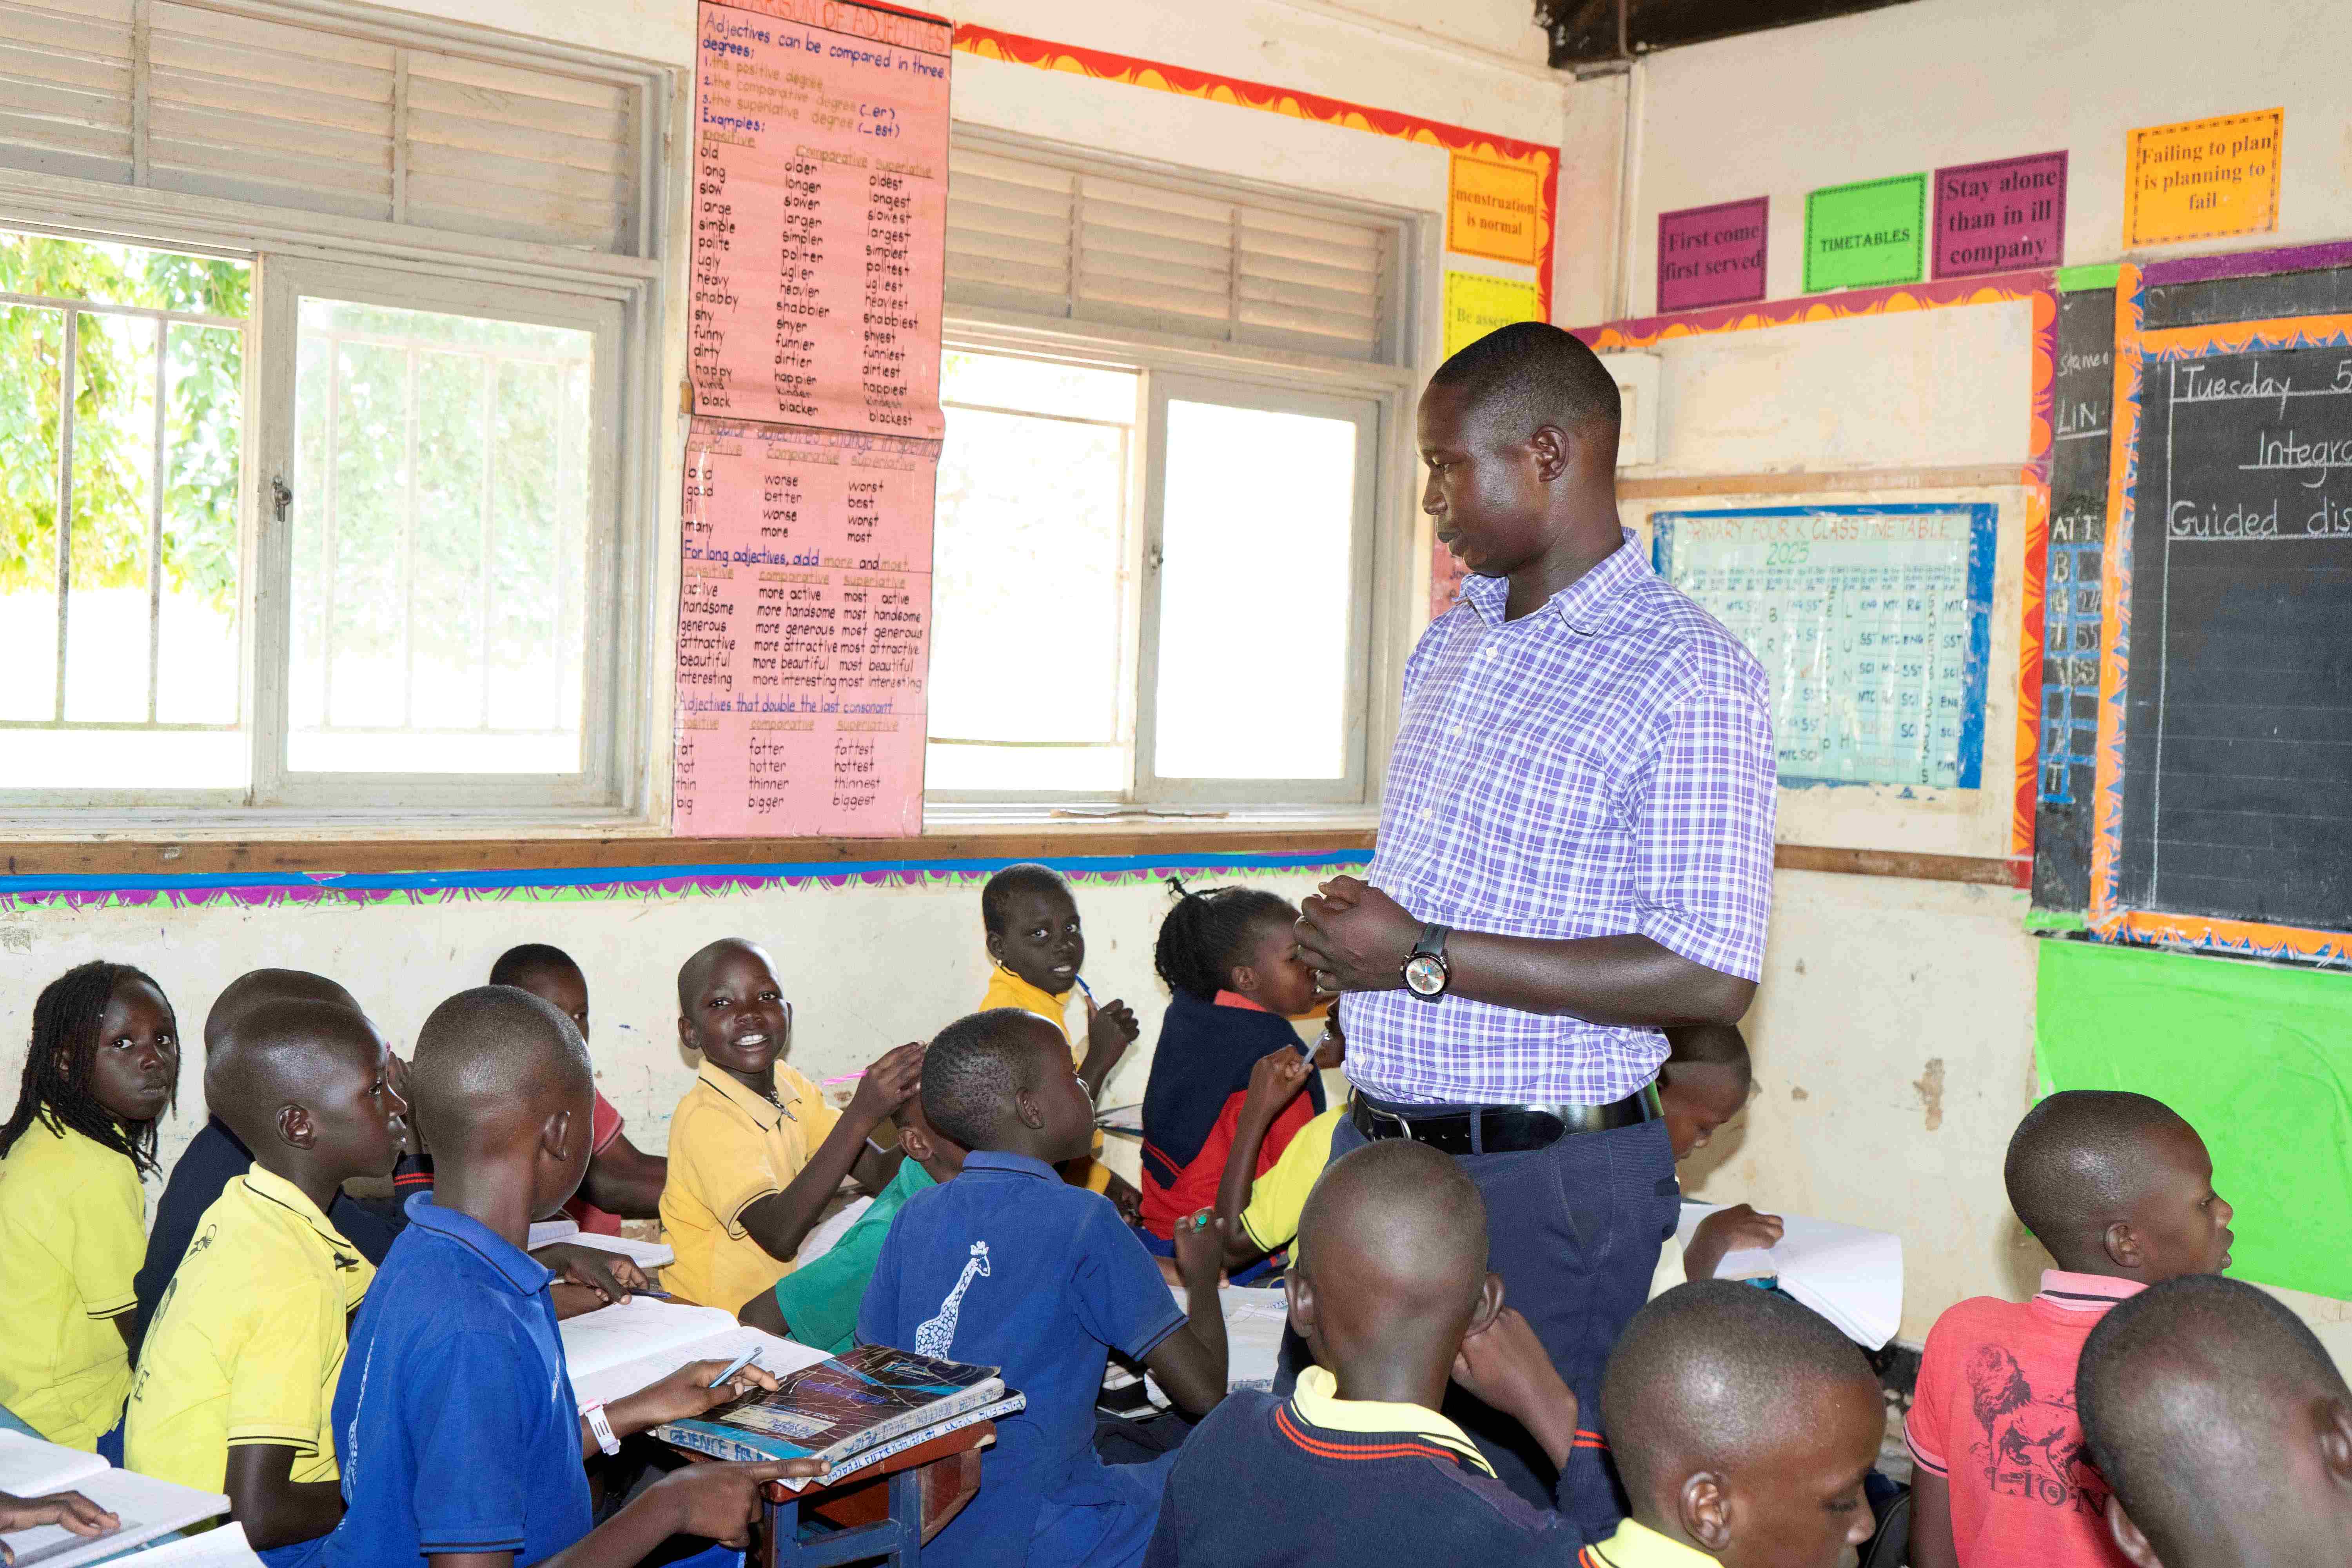 COMPARISON OF ADJECTIVES
Adjectives can be compared in three
degrees;
1.the positive degree
2.the comparative degree (_er)
3.the superlative degree (_est)
Examples:
positive comparative superlative
old older oldest
long longer longest
slow slower slowest
large larger largest
simple simpler simplest
polite politer politest
ugly uglier ugliest
heavy heavier heaviest
shabby shabbier shabbiest
shy shyer shyest
funny funnier funniest
dirty dirtier dirtiest
happy happier happiest
kind kinder kindest
black blacker blackest
Irregular adjectives change in spelling
positive comparative superlative
bad worse worst
good better best
ill worse worst
many more most
For long adjectives, add more and most.
positive comparative superlative
active more active most active
handsome more handsome most handsome
generous more generous most generous
attractive more attractive most attractive
beautiful more beautiful most beautiful
interesting more interesting most interesting
Adjectives that double the last consonant
positive comparative superlative
fat fatter fattest
hot hotter hottest
thin thinner thinnest
big bigger biggest
menstruation
is normal
Be asserti
First come
first served
TIMETABLES
Stay alone
than in ill
company
Failing to plan
is planning to
fail
PRIMARY FOUR K CLASS TIMETABLE
2025
LIN
ATT
B
Tuesday 5
Integra
Guided dis
SCIENCE
LION